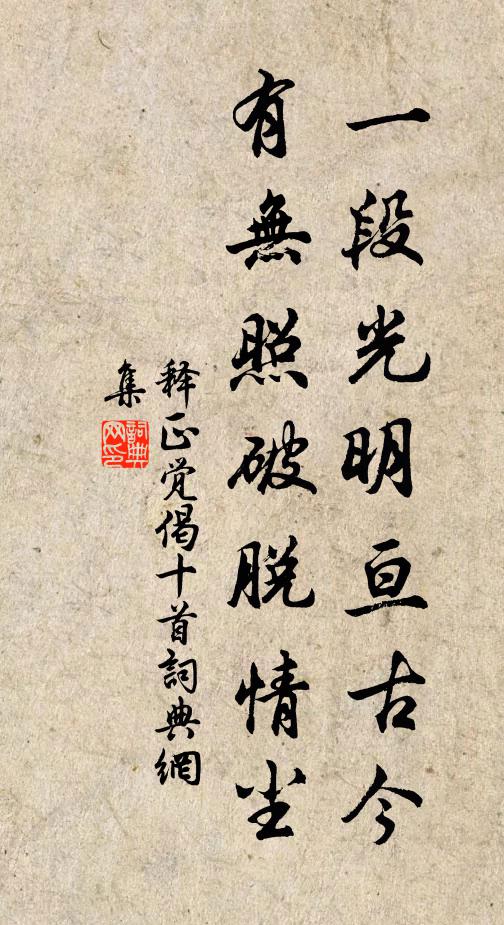 一段光明亘古今
有無照破脱情尘
释正觉偈十首詞典網
集
詞典
网印